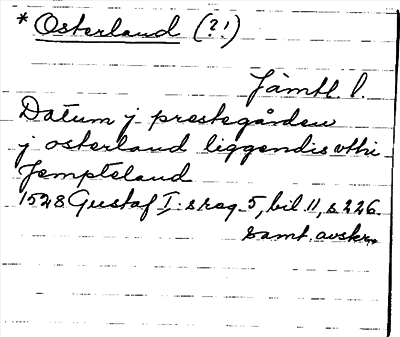 * Osterland (?!)
Jämtl. l.
Datum j prestegården
j osterland liggendis vthi
Jempteland
1528 Gustaf I:s reg. 5, bil. 11, s 226.
Samt. avskr.